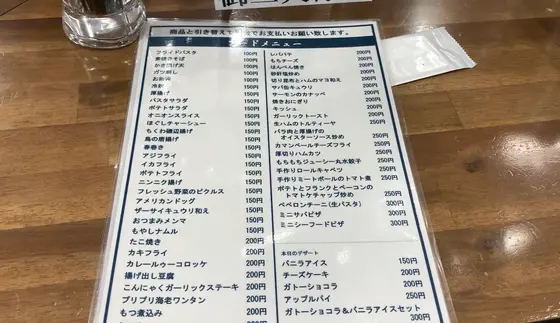 商品と引き替えで
でお支払いお願い致します。
ドメニュー
フライドパスタ 100円
かき揚げ天 100円
ガツ刺し 100円
お新香
冷奴
厚揚げ 150円
パスタサラダ 150円
ポテトサラダ 150円
オニオンスライス 150円
ほぐしチャーシュー 150円
ちくわ磯辺揚げ 150円
鳥の唐揚げ 150円
春巻き 150円
アジフライ 150円
イカフライ 150円
ポテトフライ 150円
ニンニク揚げ 150円
フレッシュ野菜のピクルス 150円
アメリカンドッグ 150円
ザーサイキュウリ和え 150円
おつまみメンマ 150円
もやしナムル 150円
たこ焼き 200円
カキフライ 200円
カレールゥーコロッケ 200円
揚げ出し豆腐 200円
こんにゃくガーリックステーキ 200円
プリプリ海老ワンタン 200円
もつ煮込み 200円
レバパテ 200円
もちチーズ 200円
はんぺん焼き 200円
砂肝塩炒め 200円
切り昆布とハムのマヨ和え 200円
サバ缶キュウリ 200円
サーモンのカナッペ 200円
焼きおにぎり 200円
キッシュ 200円
ガーリックトースト 200円
生ハムのトルティーヤ 250円
バラ肉と厚揚げの
オイスターソース炒め 250円
カマンベールチーズフライ 250円
厚切りハムカツ 250円
もちもちジューシー丸水餃子 250円
手作りロールキャベツ 250円
手作りミートボールのトマト煮 250円
ポテトとフランクとベーコンの
トマトケチャップ炒め 250円
ペペロンチーニ(生パスタ) 300円
ミニサバピザ 300円
ミニシーフードピザ 300円
本日のデザート
バニラアイス 150円
チーズケーキ 200円
ガトーショコラ 200円
アップルパイ 250円
ガトーショコラ&バニラアイスセット 300円